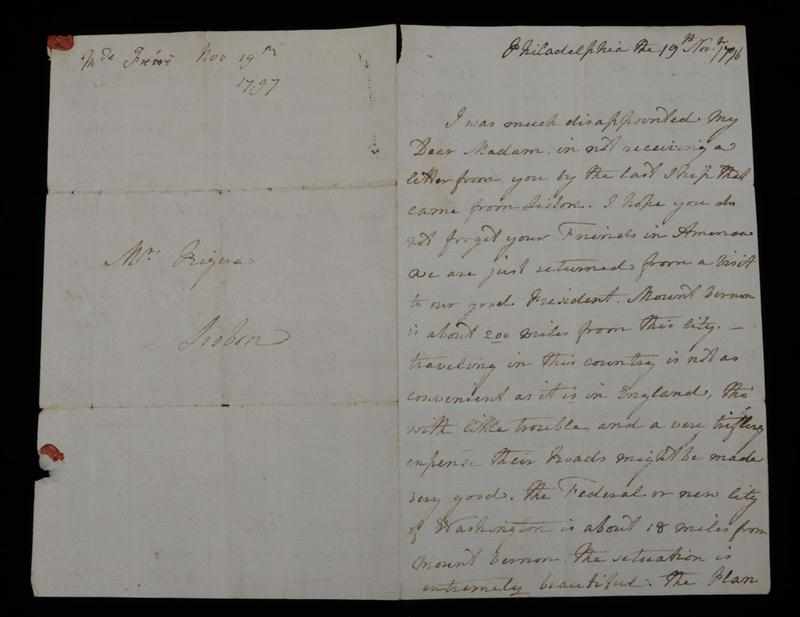 Nov 19th
1797
Mrs.
Lisbon
Philadelphia the 19th Novr. 1796
I was much disappointed My
Dear Madam in not receiving a
letter from you by the last Ship that
came from Lisbon. I hope you do
not forget your Friends in America
we are just returned from a visit
to our good President. Mount Vernon
is about 200 miles from this City. —
traveling in this country is not as
convenient as it is in England, tho'
with little trouble and a very trifling
expense their Roads might be made
very good. the Federal or new City
of Washington is about 18 miles from
Mount Vernon the situation is
extremely beautiful. The Plan